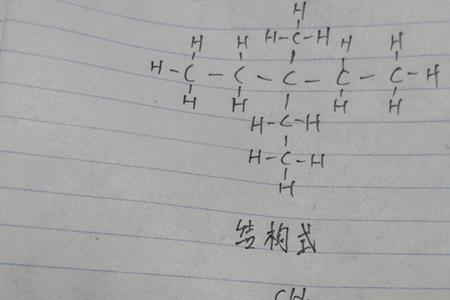 H
H H H-C-H H H
H-C-C-C-C-C-H
H H H H
H-C-H
H-C-H
H
结构式
CH